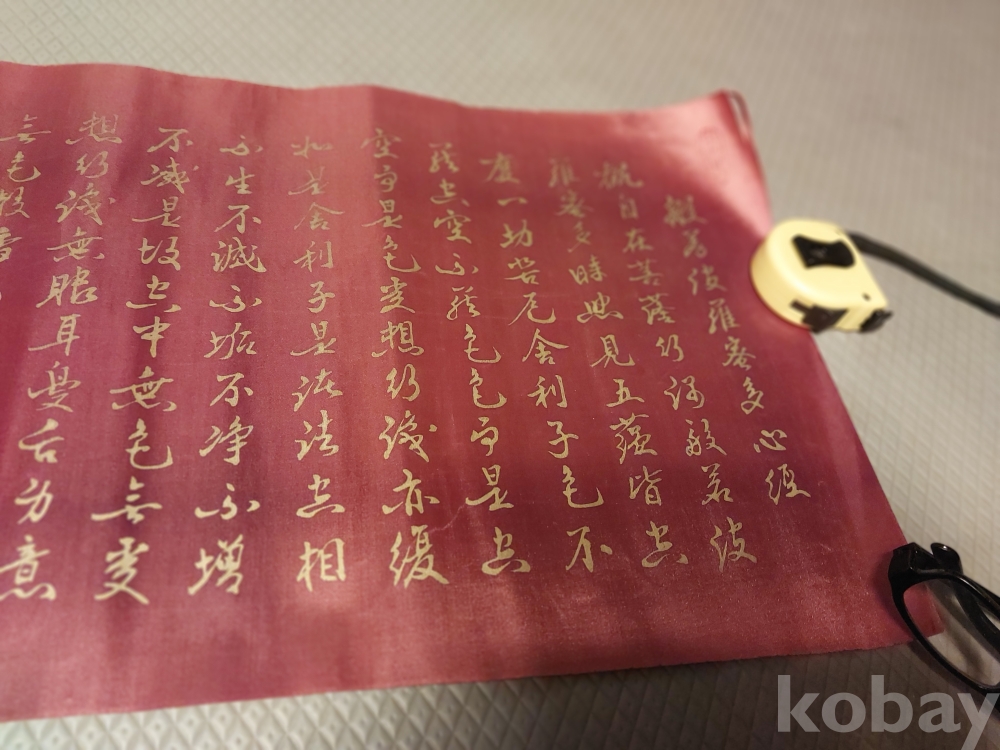 般若波羅蜜多心經
觀自在菩薩行深般若波
羅蜜多時照見五蘊皆空
度一切苦厄舍利子色不
異空空不異色色即是空
空即是色受想行識亦復
如是舍利子是諸法空相
不生不滅不垢不淨不增
不減是故空中無色無受
想行識無眼耳鼻舌身意
無色聲香
kobay